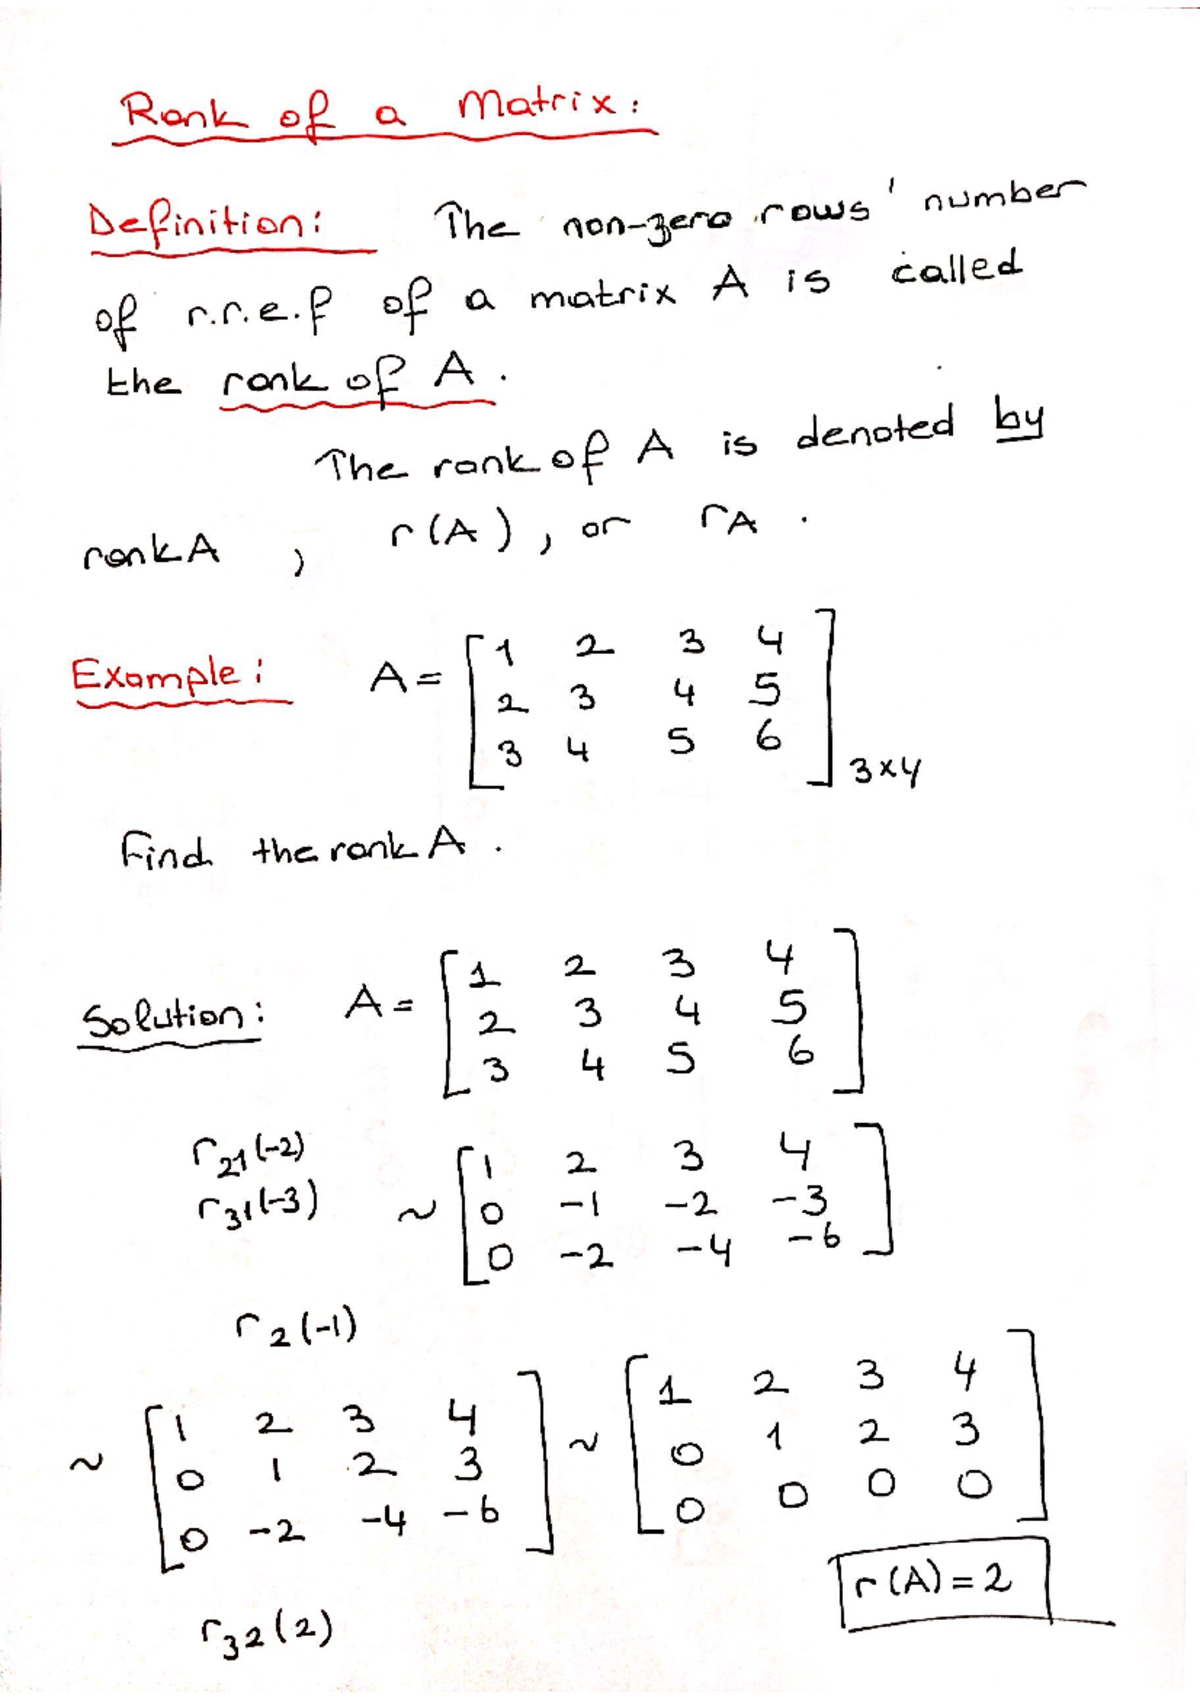 Rank of a Matrix:
Definition: The non-zero rows' number
of r.r.e.f of a matrix A is called
the rank of A.
The rank of A is denoted by
rank A , r(A), or rA .
Example: A = [1 2 3 4
2 3 4 5
3 4 5 6] 3x4
Find the rank A .
Solution: A = [1 2 3 4
2 3 4 5
3 4 5 6]
r21(-2)
r31(-3) ~ [1 2 3 4
0 -1 -2 -3
0 -2 -4 -6]
r2(-1)
~ [1 2 3 4
0 1 2 3
0 -2 -4 -6] ~ [1 2 3 4
0 1 2 3
0 0 0 0]
r32(2)
r(A) = 2